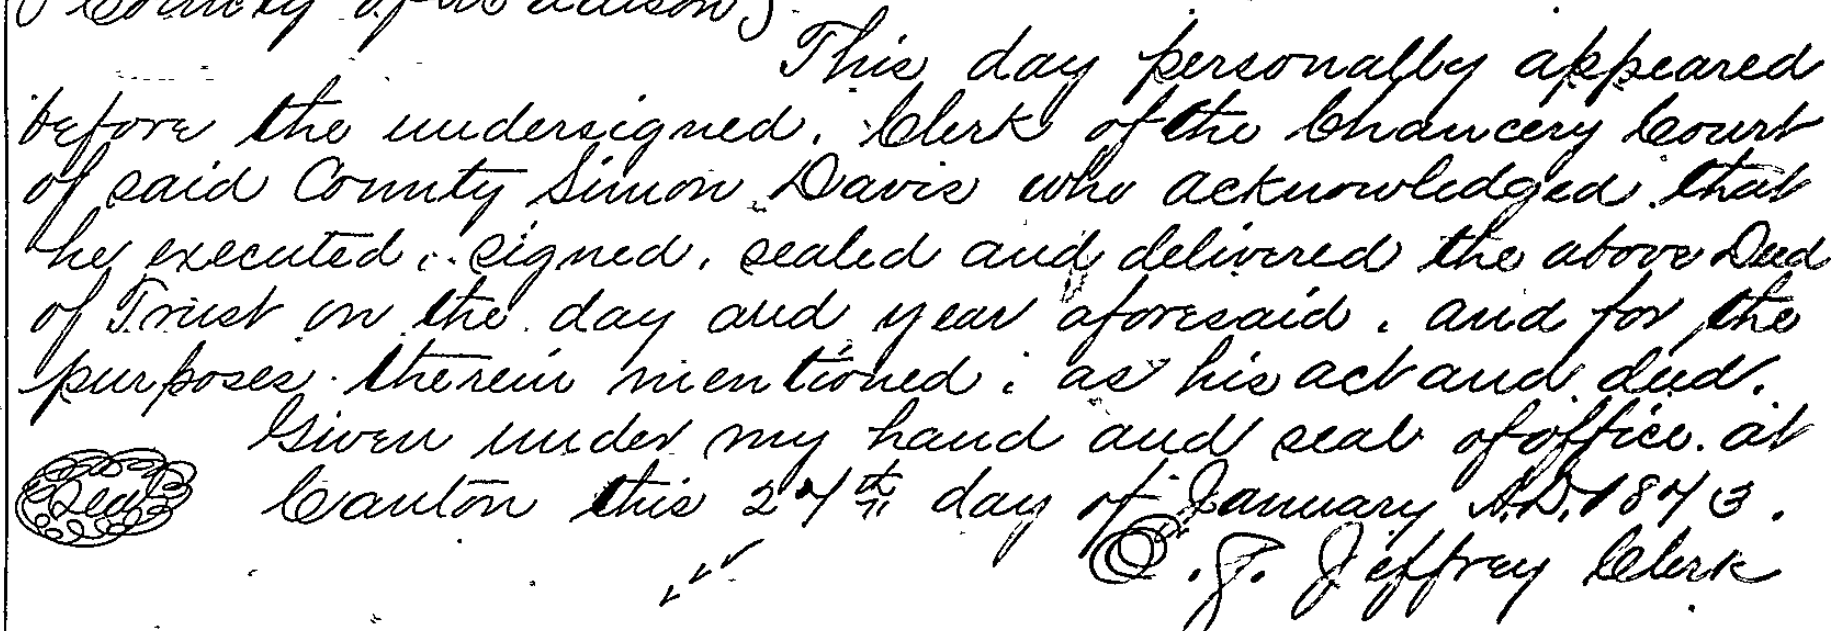 County of Madison
This day personally appeared
before the undersigned. Clerk of the Chancery Court
of said County Simon Davis who acknowledged that
he executed, signed, sealed and delivered the above Deed
of Trust on the day and year aforesaid. and for the
purposes therein mentioned. as his act and deed.
Given under my hand and seal of office. at
Seal Canton this 24th day of January A.D. 1873.
J. Jeffrey Clerk